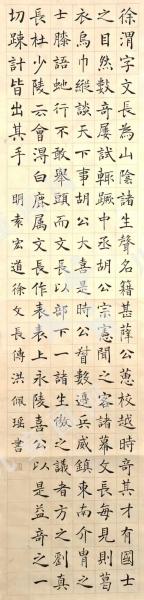 徐渭字文長為山陰諸生聲名籍甚薛公蕙校越時奇其才有國士
之目然數奇屢試輒蹶中丞胡公宗憲聞之客諸幕文長每見則葛
衣烏巾縱談天下事胡公大喜是時公督數邊兵威鎮東南介冑之
士膝語虵行不敢舉頭而文長以部下一諸生傲之議者方之劉真
長杜少陵云會得白鹿属文長作表表上永陵喜公以是益奇之一
切踈計皆出其手 明袁宏道徐文長傳洪佩瑶書